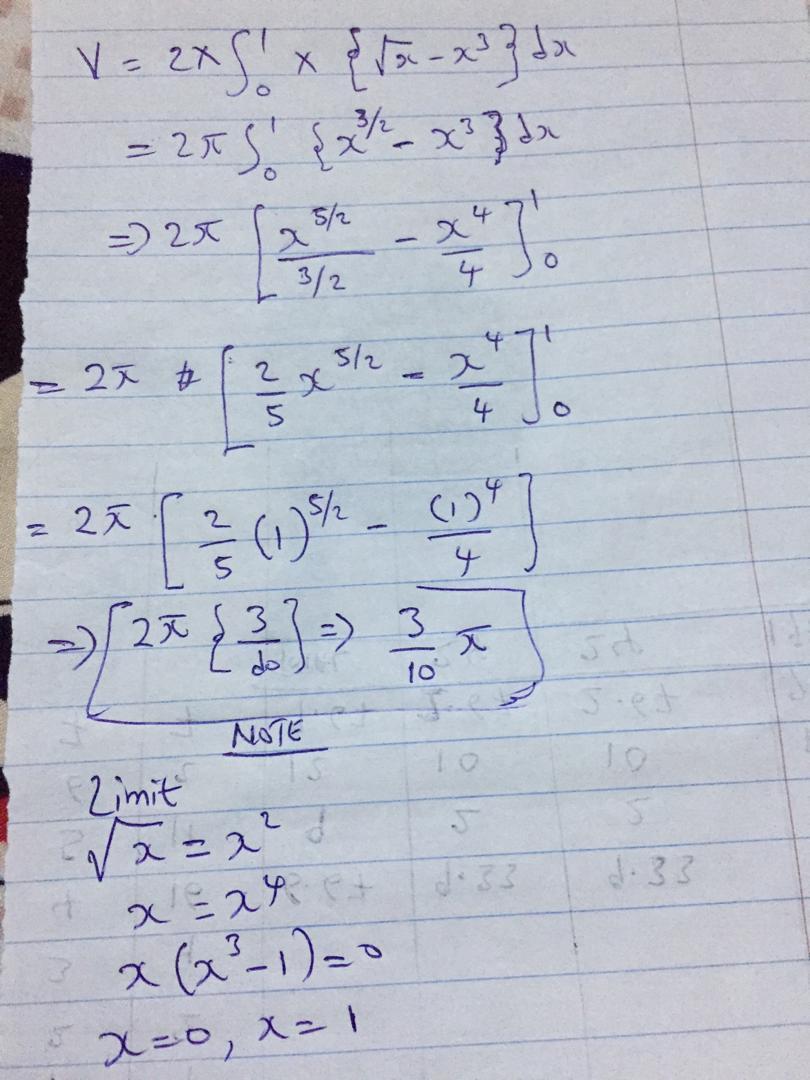 V = 2x∫₀¹ x {√x - x³} dx
= 2π ∫₀¹ {x^3/2 - x³} dx
⇒ 2π [x^5/2 / 3/2 - x⁴/4]₀¹
= 2π [2/5 x^5/2 - x⁴/4]₀¹
= 2π [2/5 (1)^5/2 - (1)⁴/4]
⇒ [2π {3/20} ⇒ 3/10 π
NOTE
Limit
√x = x²
x = x⁴
x(x³-1)=0
x=0, x=1